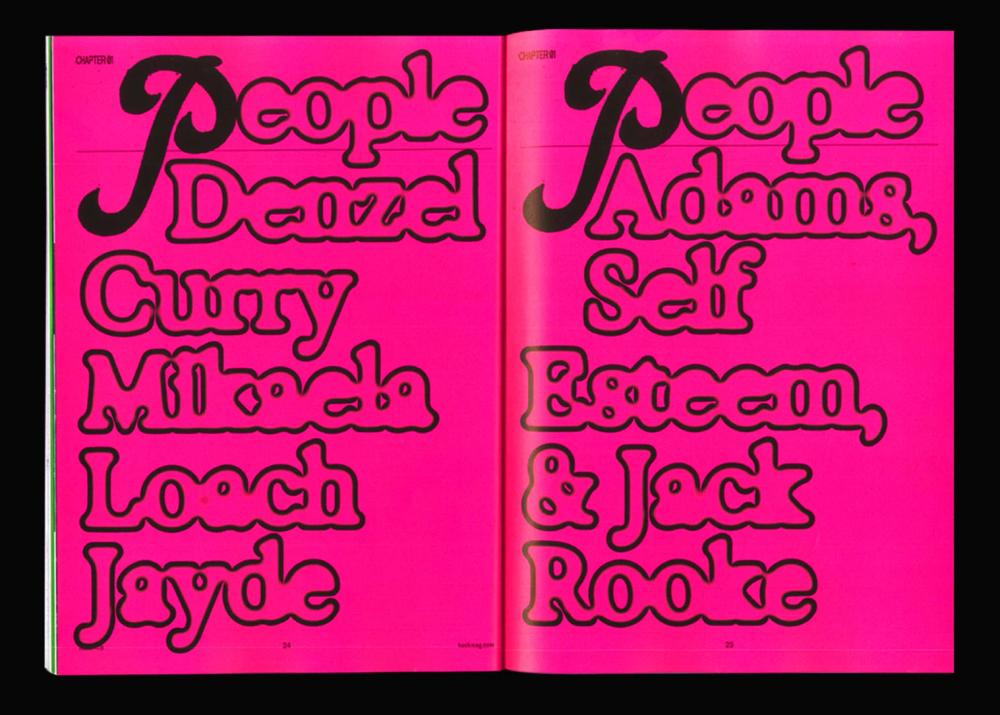 CHAPTER 01
People
Denzel
Curry
Mikaela
Loach
Jayde
24
CHAPTER 01
People
Adams,
Self
Esteem,
& Jack
Rooke
25